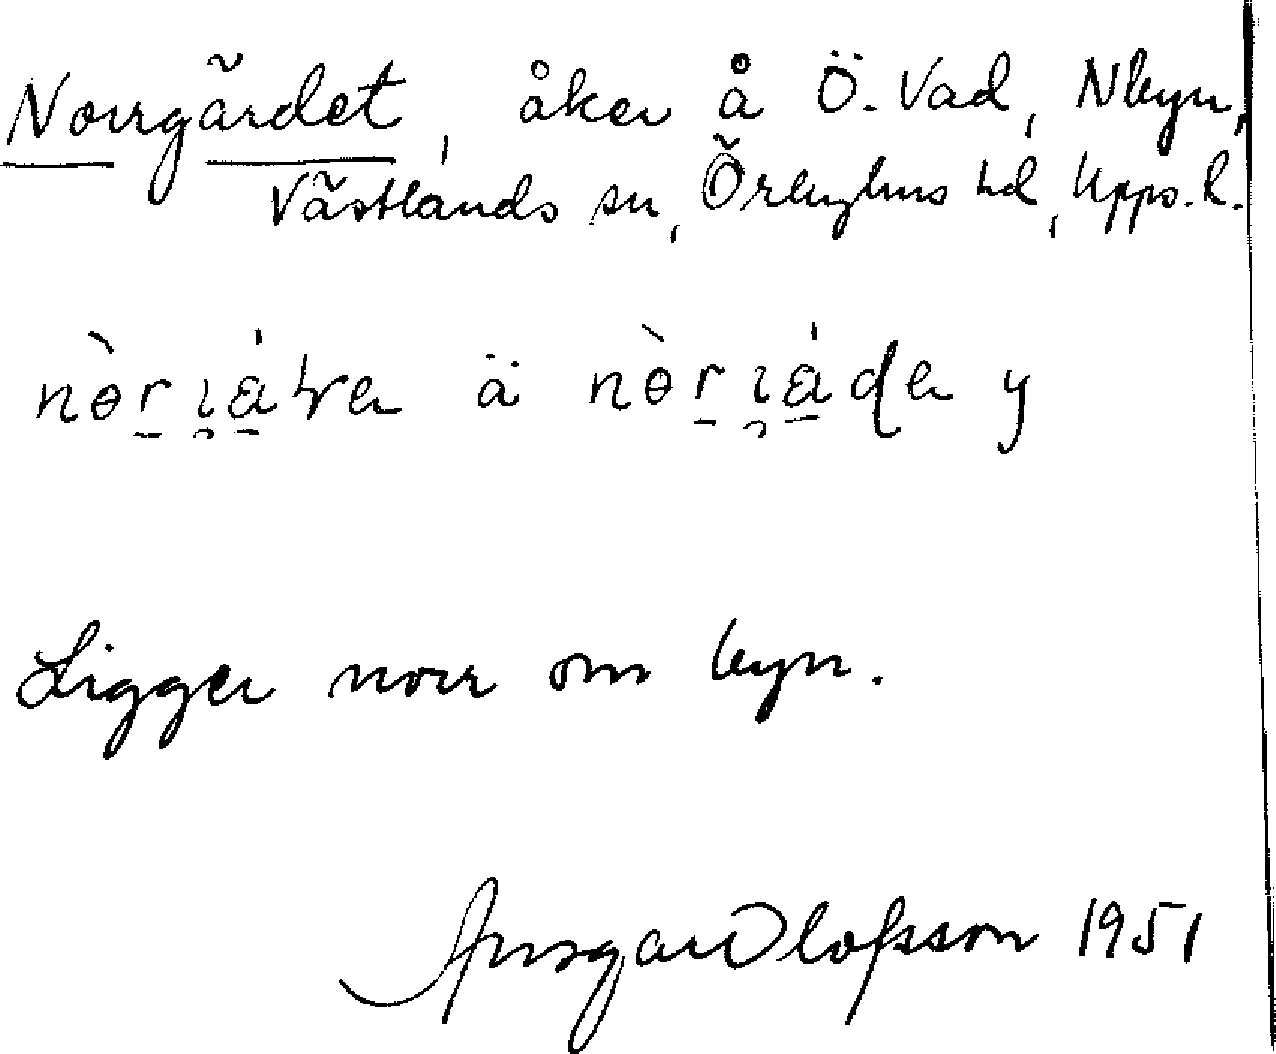 Norrgärdet, åker å Ö. Vad, Nbyn,
Västlands sn, Örbyhus hd, Upps. l.
ä y
Ligger norr om byn.
Ansgar Olofsson 1951